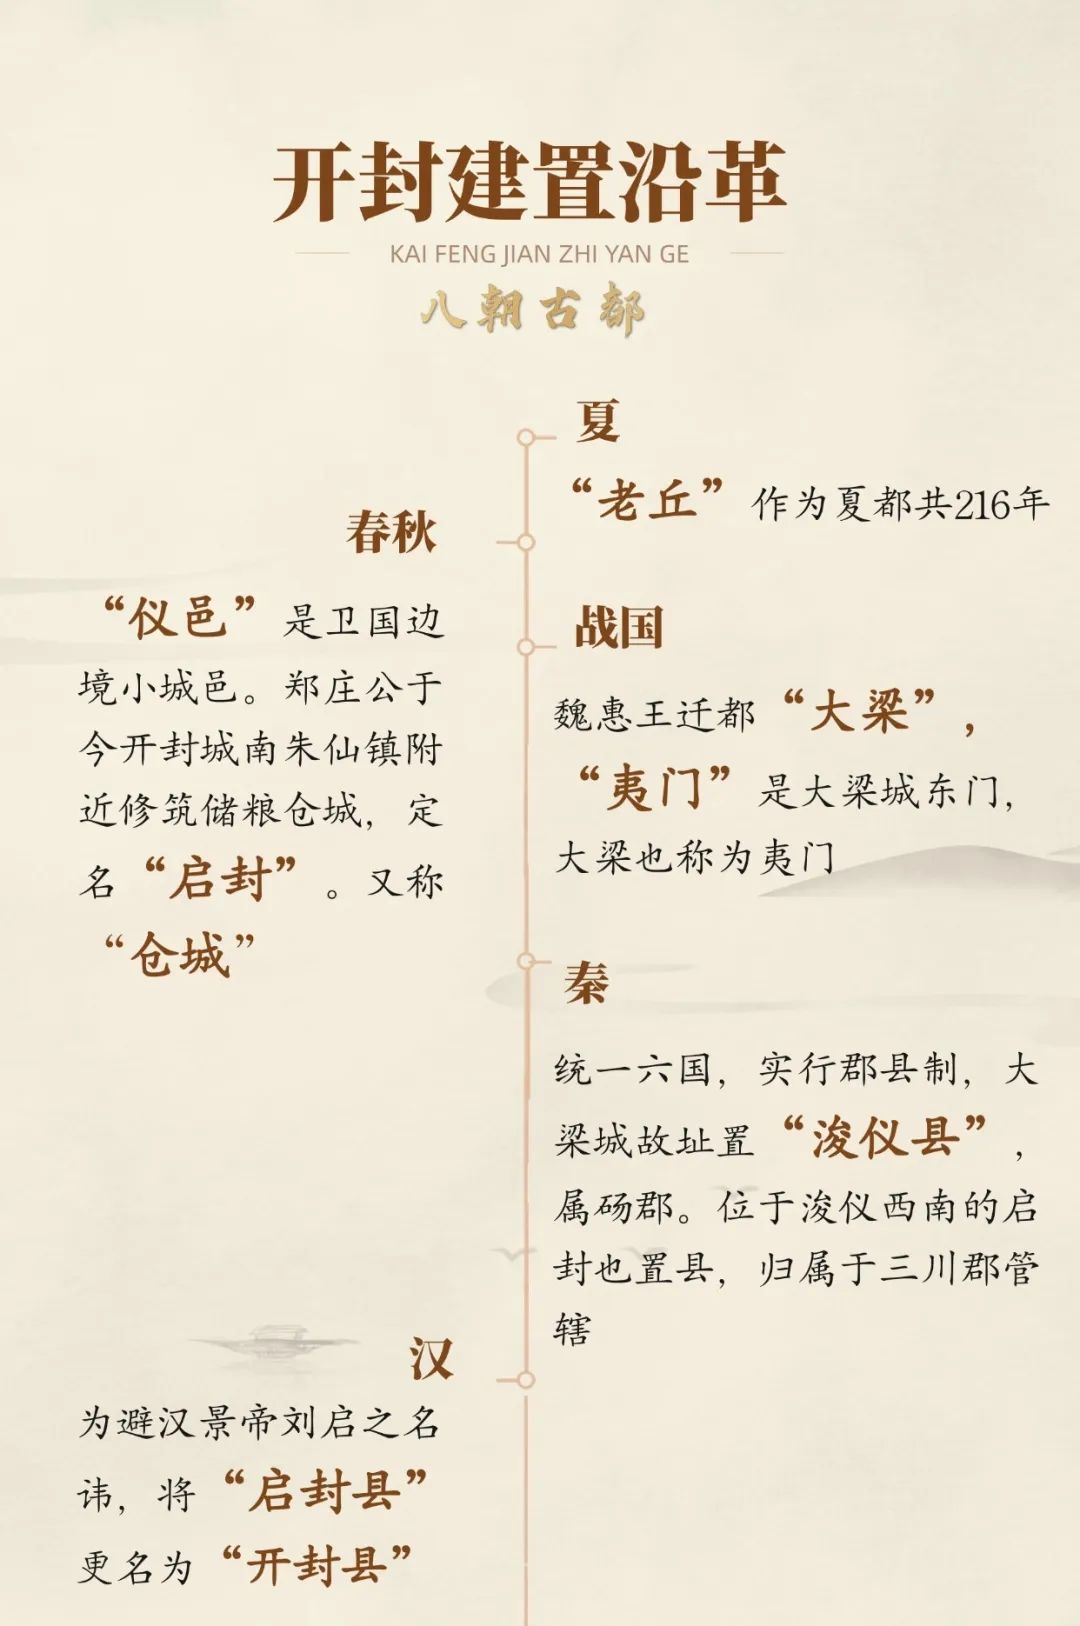 开封建置沿革
KAI FENG JIAN ZHI YAN GE
八朝古都
夏
“老丘”作为夏都共216年
春秋
“仪邑”是卫国边
境小城邑。郑庄公于
今开封城南朱仙镇附
近修筑储粮仓城，定
名“启封”。又称
“仓城”
战国
魏惠王迁都“大梁”，
“夷门”是大梁城东门，
大梁也称为夷门
秦
统一六国，实行郡县制，大
梁城故址置“浚仪县”，
属砀郡。位于浚仪西南的启
封也置县，归属于三川郡管
辖
汉
为避汉景帝刘启之名
讳，将“启封县”
更名为“开封县”